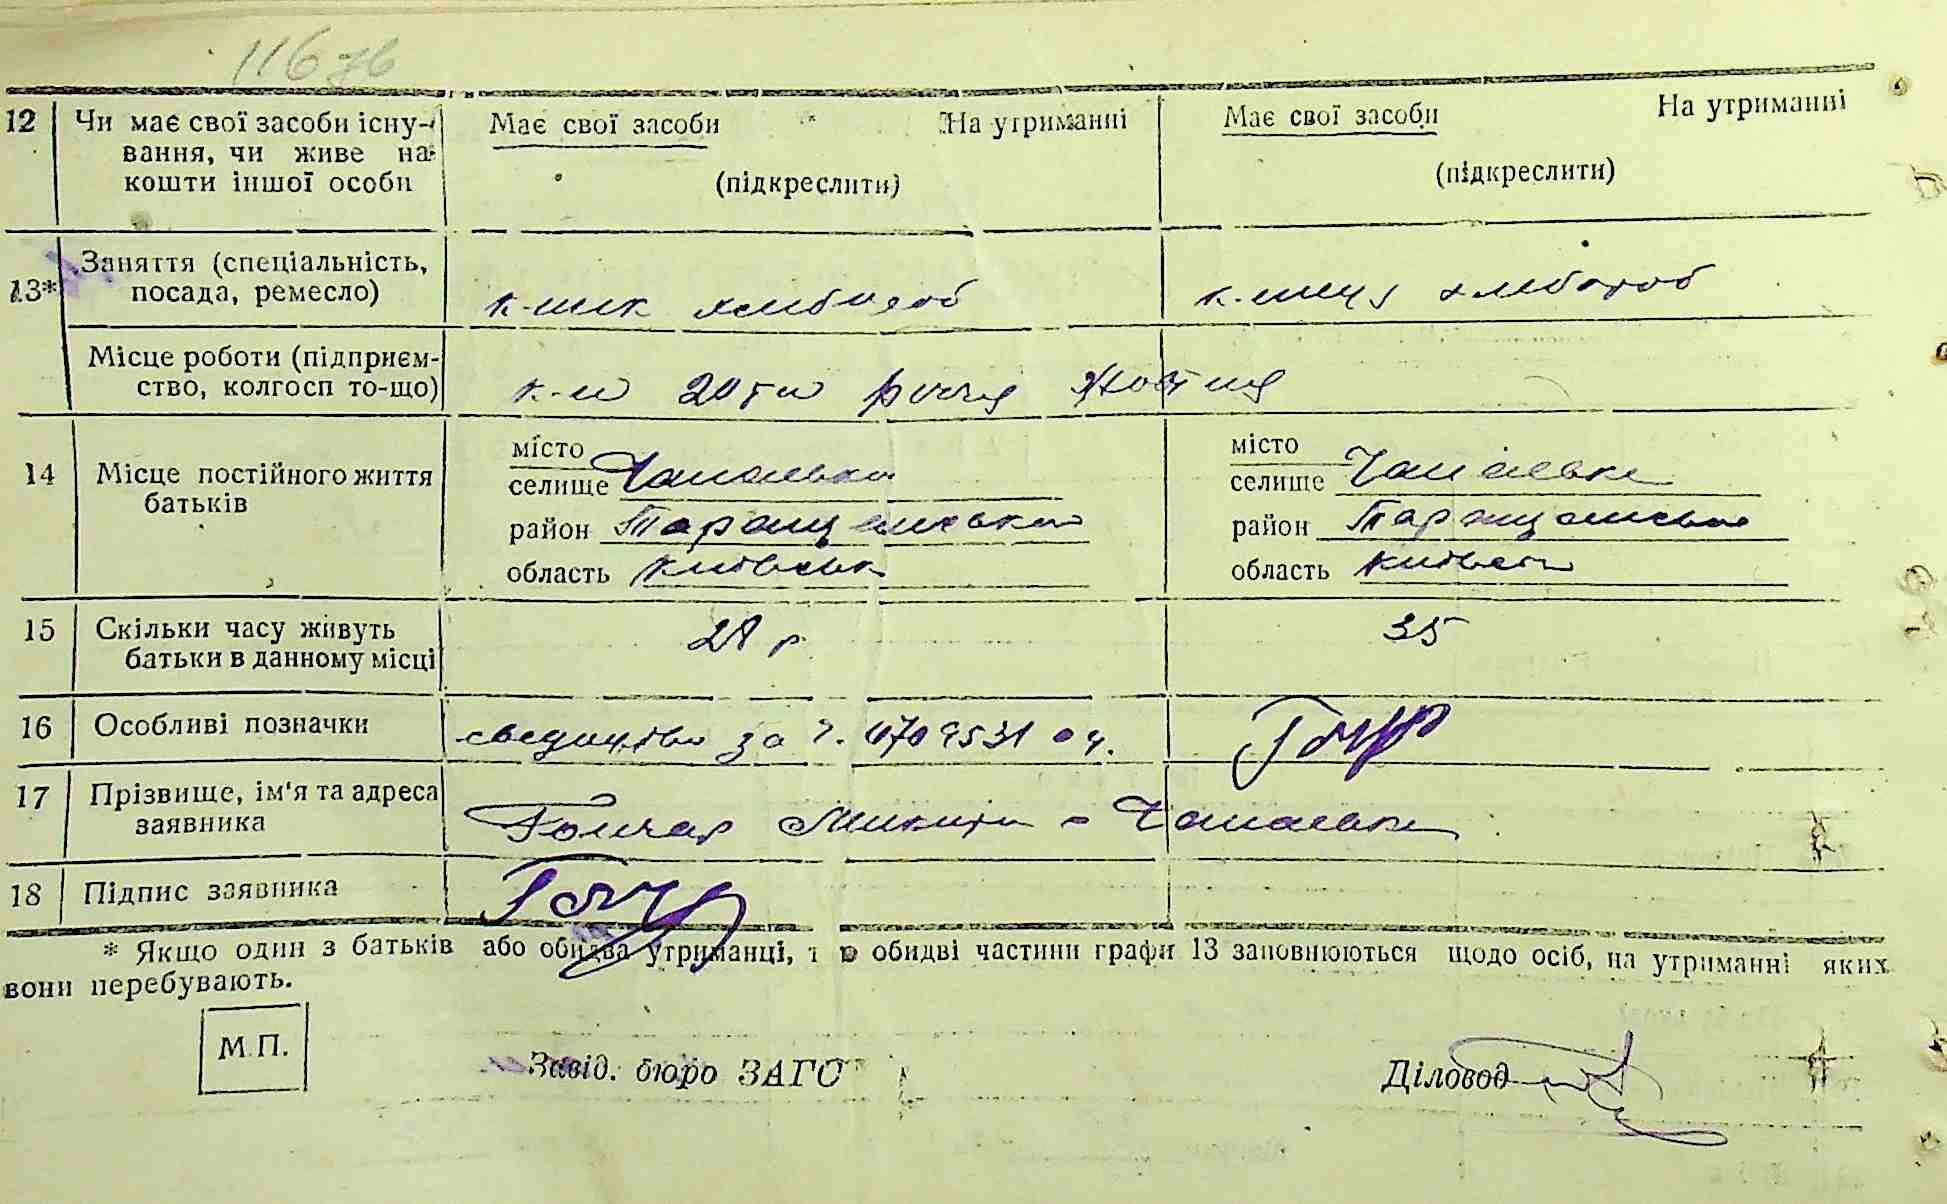 116 зв
12 Чи має свої засоби існу-
вання, чи живе на
кошти іншої особи
Має свої засоби На утриманні
(підкреслити)
Має свої засоби На утриманні
(підкреслити)
13* Заняття (спеціальність,
посада, ремесло)
к-ник хлібороб
к-ниця хлібороб
Місце роботи (підприєм-
ство, колгосп то-що)
к-п 20ти річчя Жовтня
14 Місце постійного життя
батьків
місто
селище Чапаєвка
район Таращанський
область Київськ
місто
селище Чапаєвка
район Таращанський
область
15 Скільки часу живуть
батьки в данному місці
28 р
35
16 Особливі позначки
за ч.
17 Прізвище, ім'я та адреса
заявника
Гончар Микита - Чапаєвка
18 Підпис заявника
* Якщо один з батьків або обидва утриманці, то обидві частини графи 13 заповнюються щодо осіб, на утриманні яких
вони перебувають.
М.П.
Завід. бюро ЗАГС
Діловод